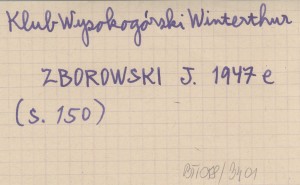 Klub Wysokogórski Winterthur
ZBOROWSKI J. 1947 e
(s. 150)